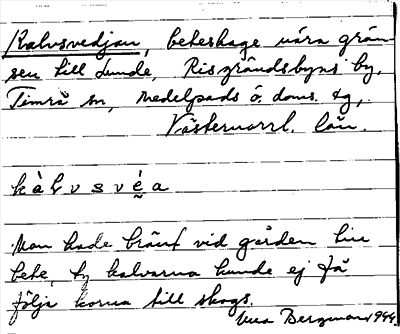 Kalvsvedjan, beteshage nära grän-
sen till Lunde, Risgrändsbyns by,
Timrå sn, Medelpads ö. doms. tg,
Västernorrl. län.
kàlvsvéa
Man hade bränt vid gården till
bete, ty kalvarna kunde ej få
följa korna till skogs.
Vera Bergman 1944